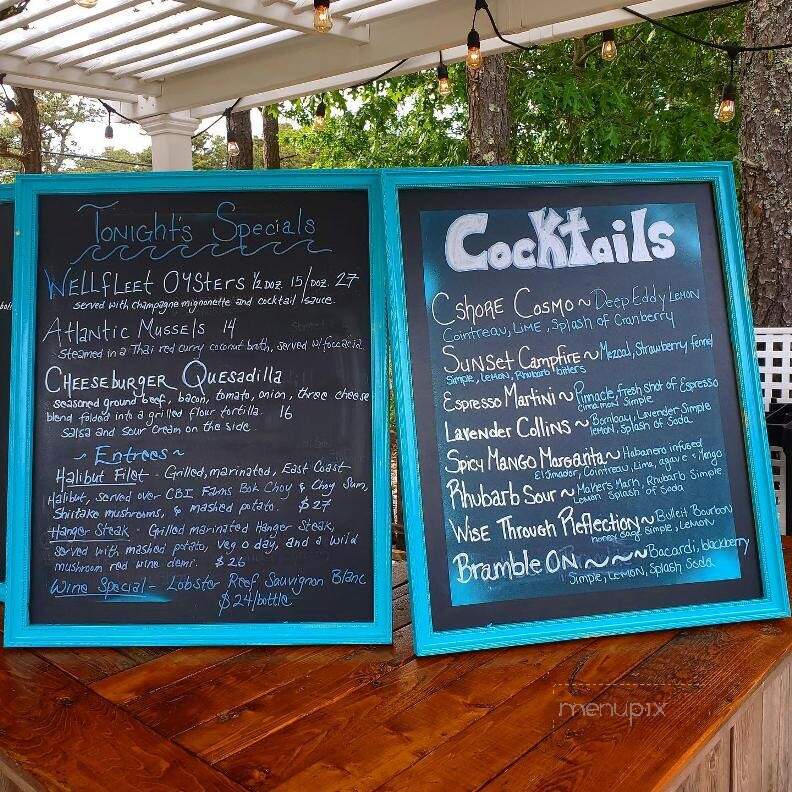 Tonight's Specials
Wellfleet Oysters 1/2 Doz 15/Doz. 27
served with champagne mignonette and cocktail sauce.
Atlantic Mussels 14
Steamed in a Thai red curry coconut broth, served w/foccacia.
Cheeseburger Quesadilla
seasoned ground beef, bacon, tomato, onion, three cheese
blend folded into a grilled flour tortilla. 16
salsa and sour cream on the side
~ Entrees ~
Halibut Filet - Grilled, marinated, East Coast
Halibut, served over CBI Farms Bok Choy & Choy Sum,
Shiitake mushrooms, & mashed potato. $27
Hanger Steak - Grilled marinated Hanger Steak,
served with mashed potato, veg o day, and a wild
mushroom red wine demi. $26
Wine Special - Lobster Reef Sauvignon Blanc
$24/bottle
Cocktails
CShore Cosmo ~ Deep Eddy Lemon
Cointreau, Lime, Splash of Cranberry
Sunset Campfire ~ Mezcal, Strawberry fennel
Simple, Lemon, Rhubarb bitters
Espresso Martini ~ Pinnacle, fresh shot of Espresso
cinnamon Simple
Lavender Collins ~ Bombay, Lavender Simple
lemon, Splash of Soda
Spicy Mango Margarita ~ Habanero infused
El Jimador, Cointreau, Lime, agave & Mango
Rhubarb Sour ~ Makers Mark, Rhubarb Simple
Lemon Splash of Soda
Wise Through Reflection ~ Bulleit Bourbon
honey sage simple, Lemon
Bramble On ~~~ Bacardi, blackberry
Simple, Lemon, Splash Soda
menupix